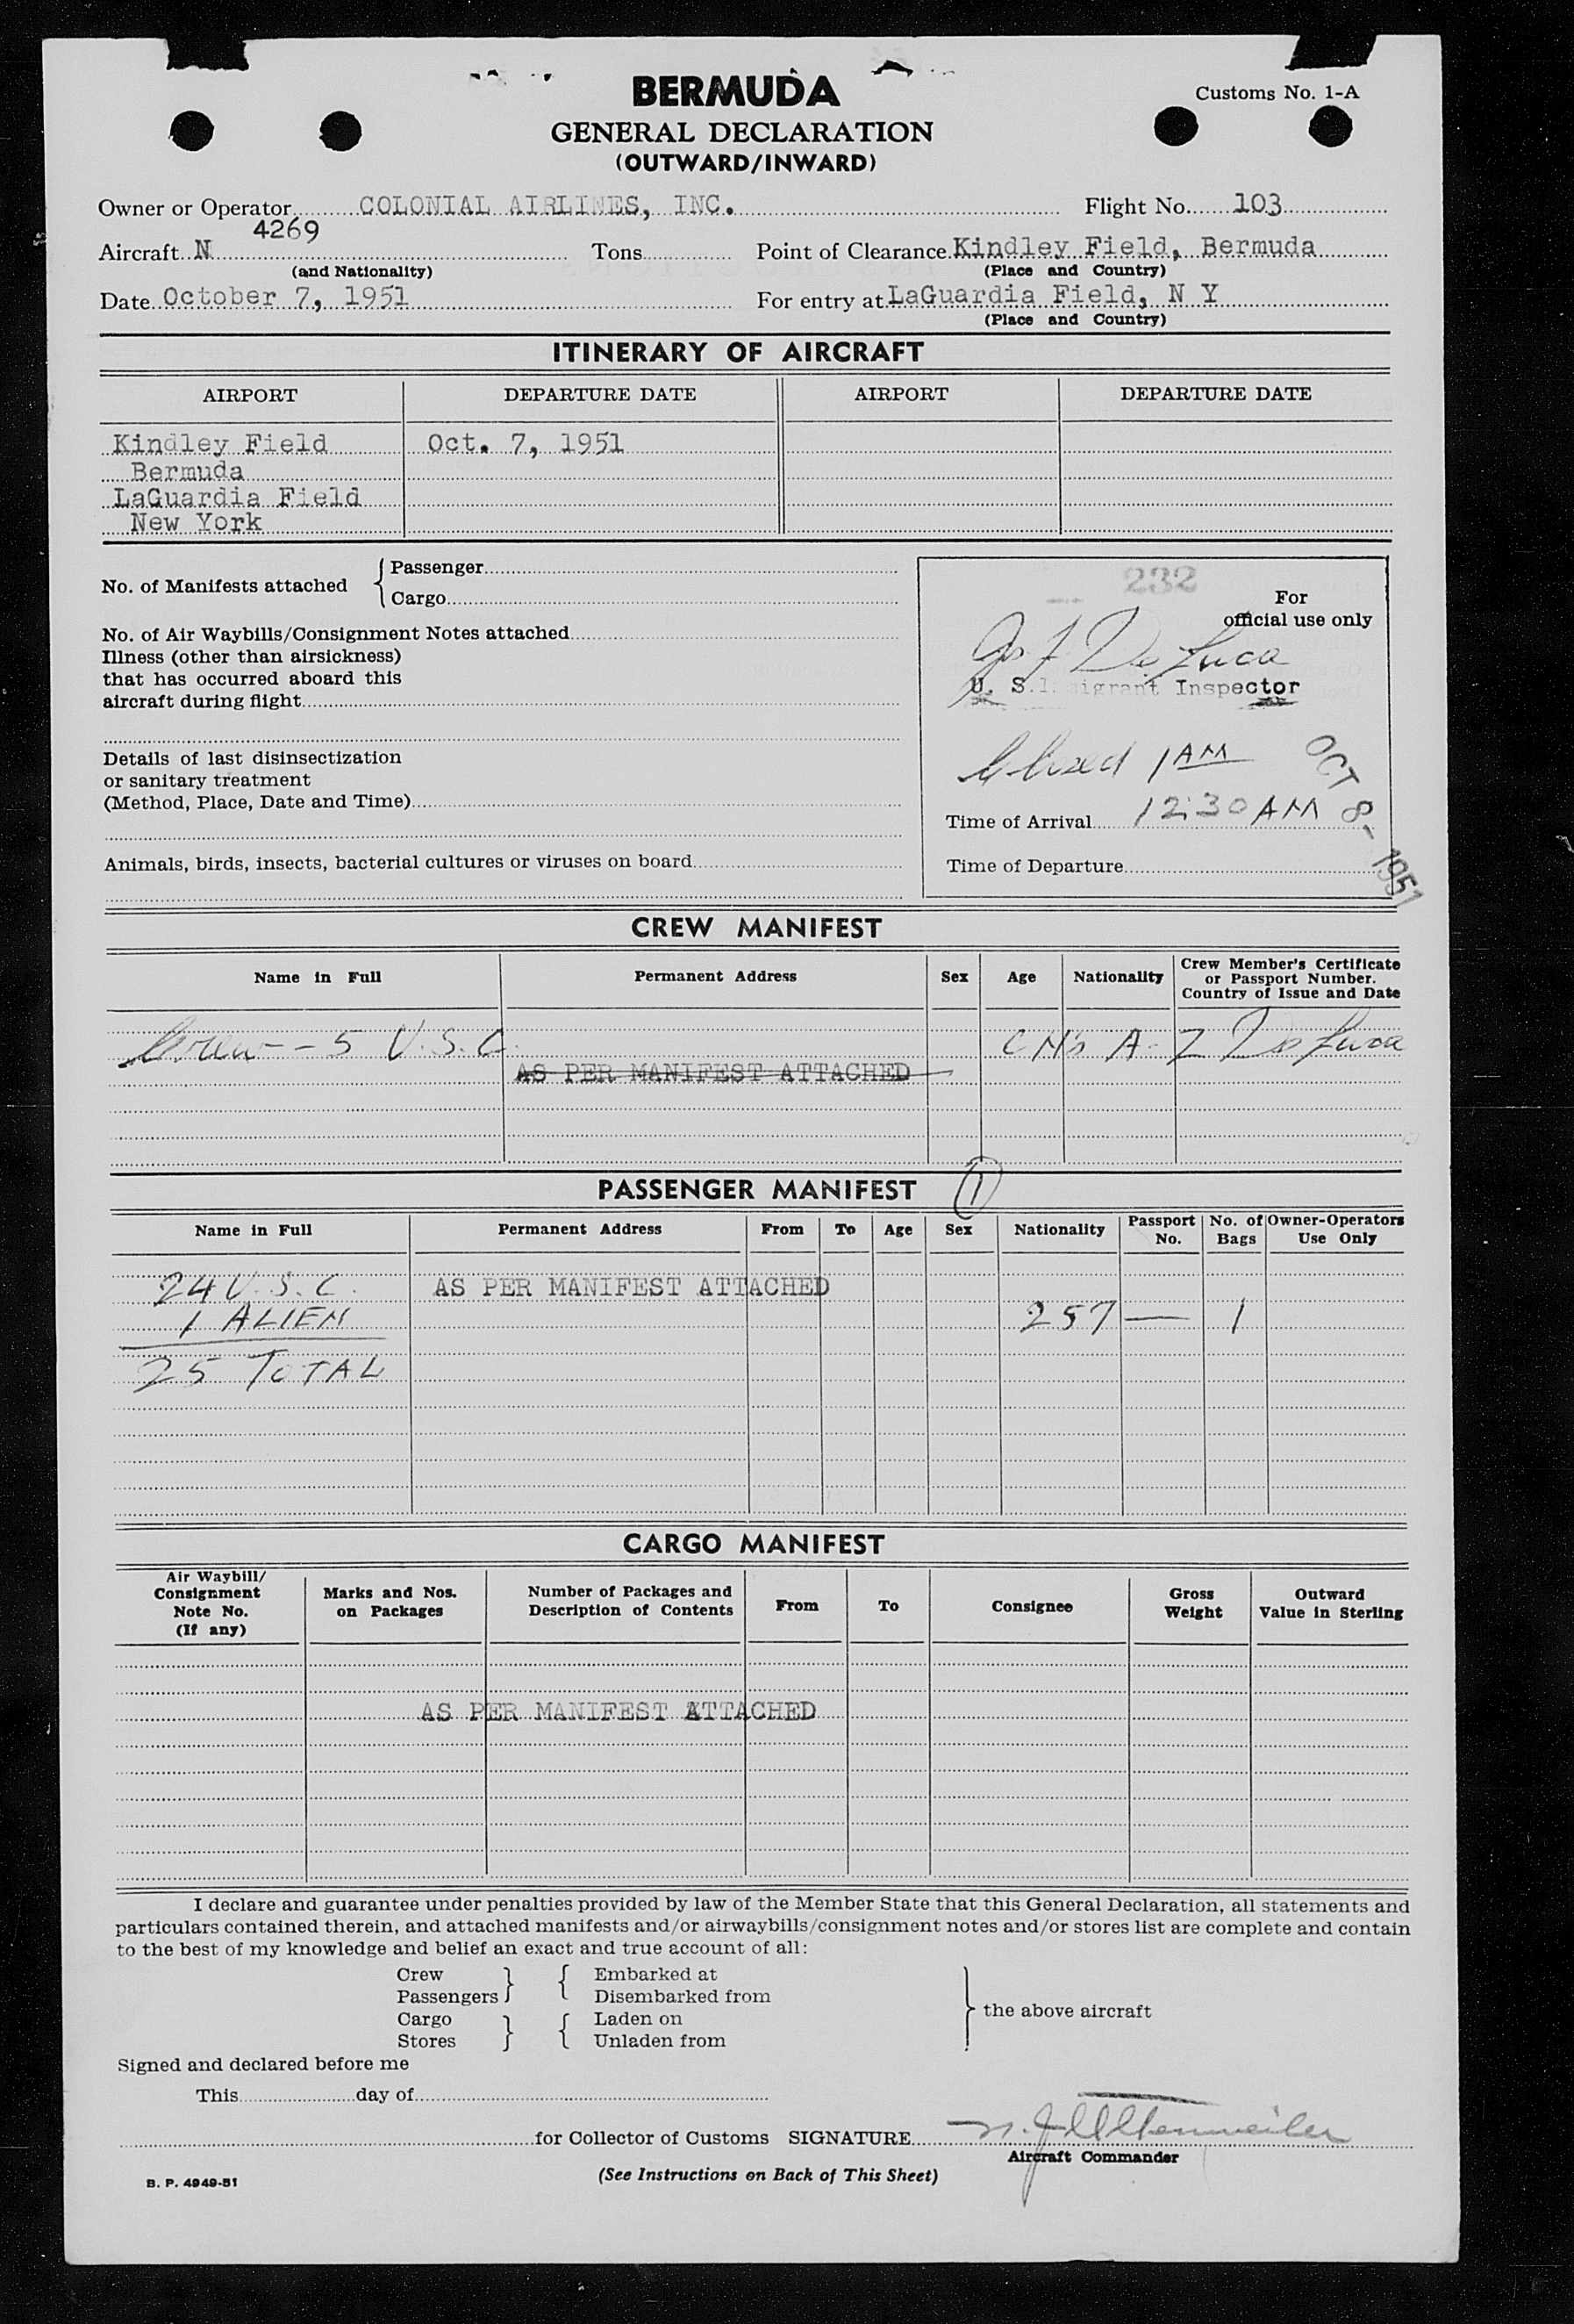 BERMUDA
Customs No. 1-A
GENERAL DECLARATION
(OUTWARD/INWARD)
Owner or Operator COLONIAL AIRLINES, INC. Flight No. 103
4269
Aircraft N Tons Point of Clearance Kindley Field, Bermuda
(and Nationality) (Place and Country)
Date October 7, 1951 For entry at LaGuardia Field, N Y
(Place and Country)
ITINERARY OF AIRCRAFT
AIRPORT DEPARTURE DATE AIRPORT DEPARTURE DATE
Kindley Field Oct. 7, 1951
Bermuda
LaGuardia Field
New York
No. of Manifests attached { Passenger
Cargo
No. of Air Waybills/Consignment Notes attached
Illness (other than airsickness)
that has occurred aboard this
aircraft during flight
Details of last disinsectization
or sanitary treatment
(Method, Place, Date and Time)
Animals, birds, insects, bacterial cultures or viruses on board
232
For
official use only
De Luca
U. S. Immigrant Inspector
1 AM
OCT 8 - 1951
Time of Arrival 12:30 AM
Time of Departure
CREW MANIFEST
Name in Full Permanent Address Sex Age Nationality Crew Member's Certificate
or Passport Number.
Country of Issue and Date
Crew - 5 U.S.C. De Luca
AS PER MANIFEST ATTACHED
PASSENGER MANIFEST 1
Name in Full Permanent Address From To Age Sex Nationality Passport No. No. of Bags Owner-Operators Use Only
24 U.S.C. AS PER MANIFEST ATTACHED
1 ALIEN 257 — 1
25 TOTAL
CARGO MANIFEST
Air Waybill/ Consignment Note No. (If any) Marks and Nos. on Packages Number of Packages and Description of Contents From To Consignee Gross Weight Outward Value in Sterling
AS PER MANIFEST ATTACHED
I declare and guarantee under penalties provided by law of the Member State that this General Declaration, all statements and
particulars contained therein, and attached manifests and/or airwaybills/consignment notes and/or stores list are complete and contain
to the best of my knowledge and belief an exact and true account of all:
Crew } { Embarked at
Passengers Disembarked from
} the above aircraft
Cargo } { Laden on
Stores Unladen from
Signed and declared before me
This day of
for Collector of Customs SIGNATURE
Aircraft Commander
(See Instructions on Back of This Sheet)
B. P. 4949-51